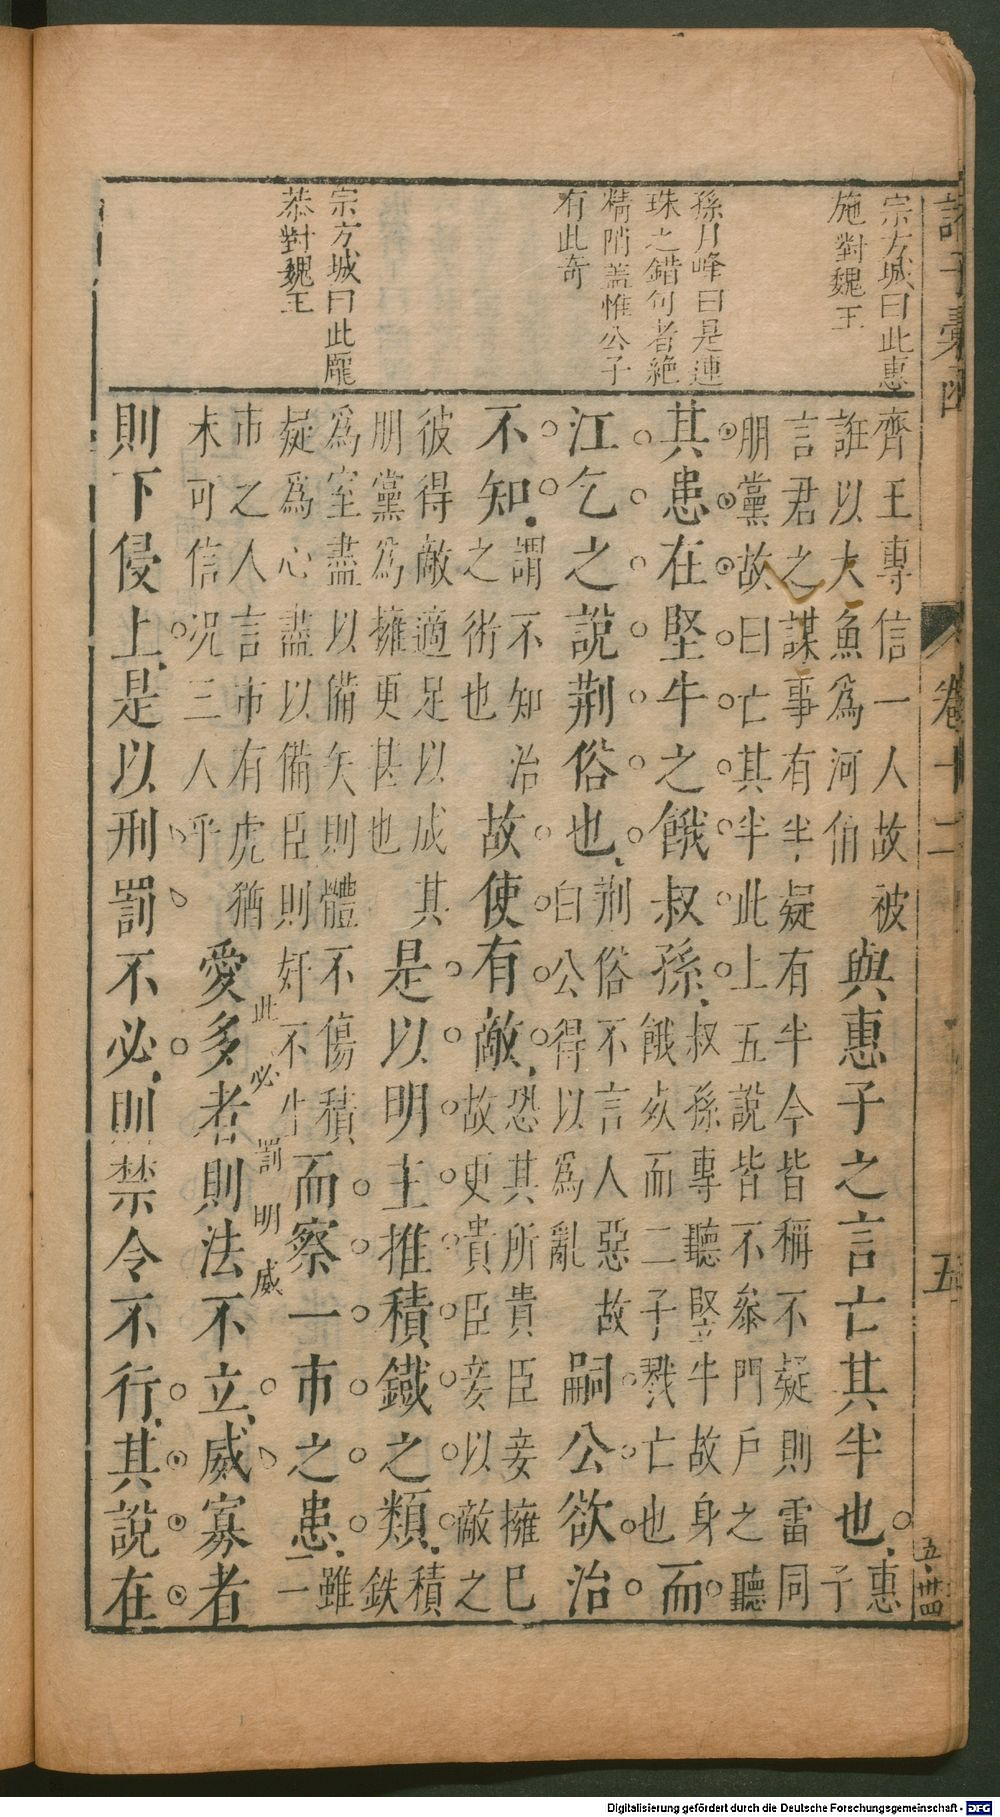 諸子彙函 卷十二 五 五.卅四
宗方城曰此惠
施對魏王
孫月峰曰是連
珠之錯句者絶
精陗蓋惟公子
有此奇
宗方城曰此龐
恭對魏王
齊王專信一人故被
誑以大魚爲河伯
與惠子之言亡其半也
惠
子
言君之謀事有半疑有半今皆稱不疑則雷同
朋黨故曰亡其半此上五說皆不叅門戶之聽
其患在堅牛之餓叔孫
叔孫專聽堅牛故身
餓死而二子戮亡也
而
江乞之說荆俗也
荆俗不言人惡故
白公得以爲亂
嗣公欲治
不知
謂不知治
之術也
故使有敵
恐其所貴臣妾擁已
故更貴臣妾以敵之
彼得敵適足以成其
朋黨爲擁更甚也
是以明主推積鐡之類
積
鉄
爲室盡以備矢則體不傷積
疑爲心盡以備臣則奸不生
而察一市之患
雖
二
市之人言市有虎猶
未可信況三人乎
此必罰明威
愛多者則法不立威寡者
則下侵上是以刑罰不必則禁令不行其說在
Digitalisierung gefördert durch die Deutsche Forschungsgemeinschaft - DFG